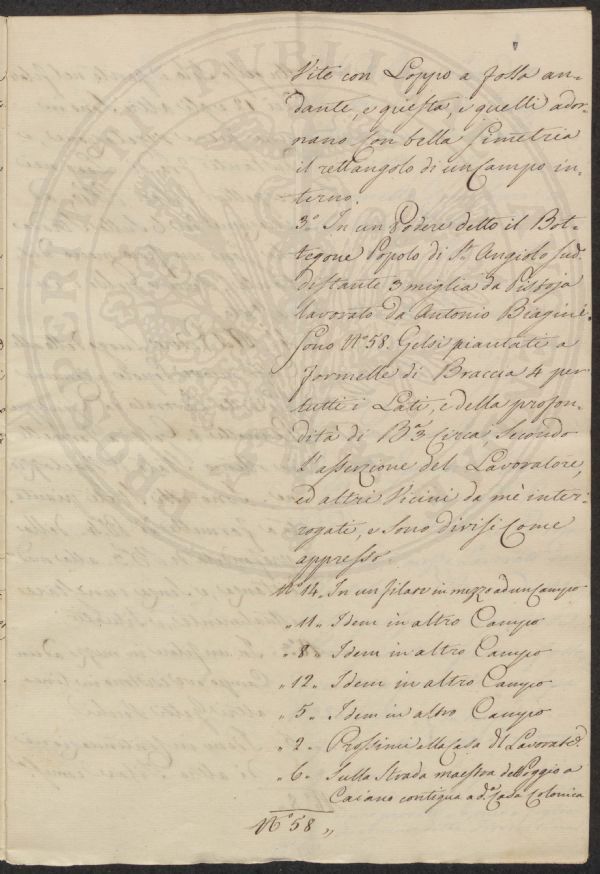 Vite con Loppo a fossa an-
dante, e questa, e quelli ador-
nano con bella simetria
il rettangolo di un Campo in-
terno.
3.° In un Podere detto il Bot-
tegone Popolo di S. Angiolo sud.
distante 3 miglia da Pistoja
lavorato da Antonio Biagini
sono N° 58. Gelsi piantati a
formelle di Braccia 4 per
tutti i Lati, e della profon-
dità di B.a 3 circa, secondo
l'asserzione del Lavoratore,
ed altri Vicini da mè inter-
rogati, e sono divisi come
appresso
N° 14. In un filare in mezzo ad un Campo
" 11. Idem in altro Campo
" 8. Idem in altro Campo
" 12. Idem in altro Campo
" 5. Idem in altro Campo
" 2. Prossimi alla Casa del Lavorat.e
" 6. Sulla Strada maestra del Poggio a
Caiano contigua a d.a Casa Colonica
N° 58 "